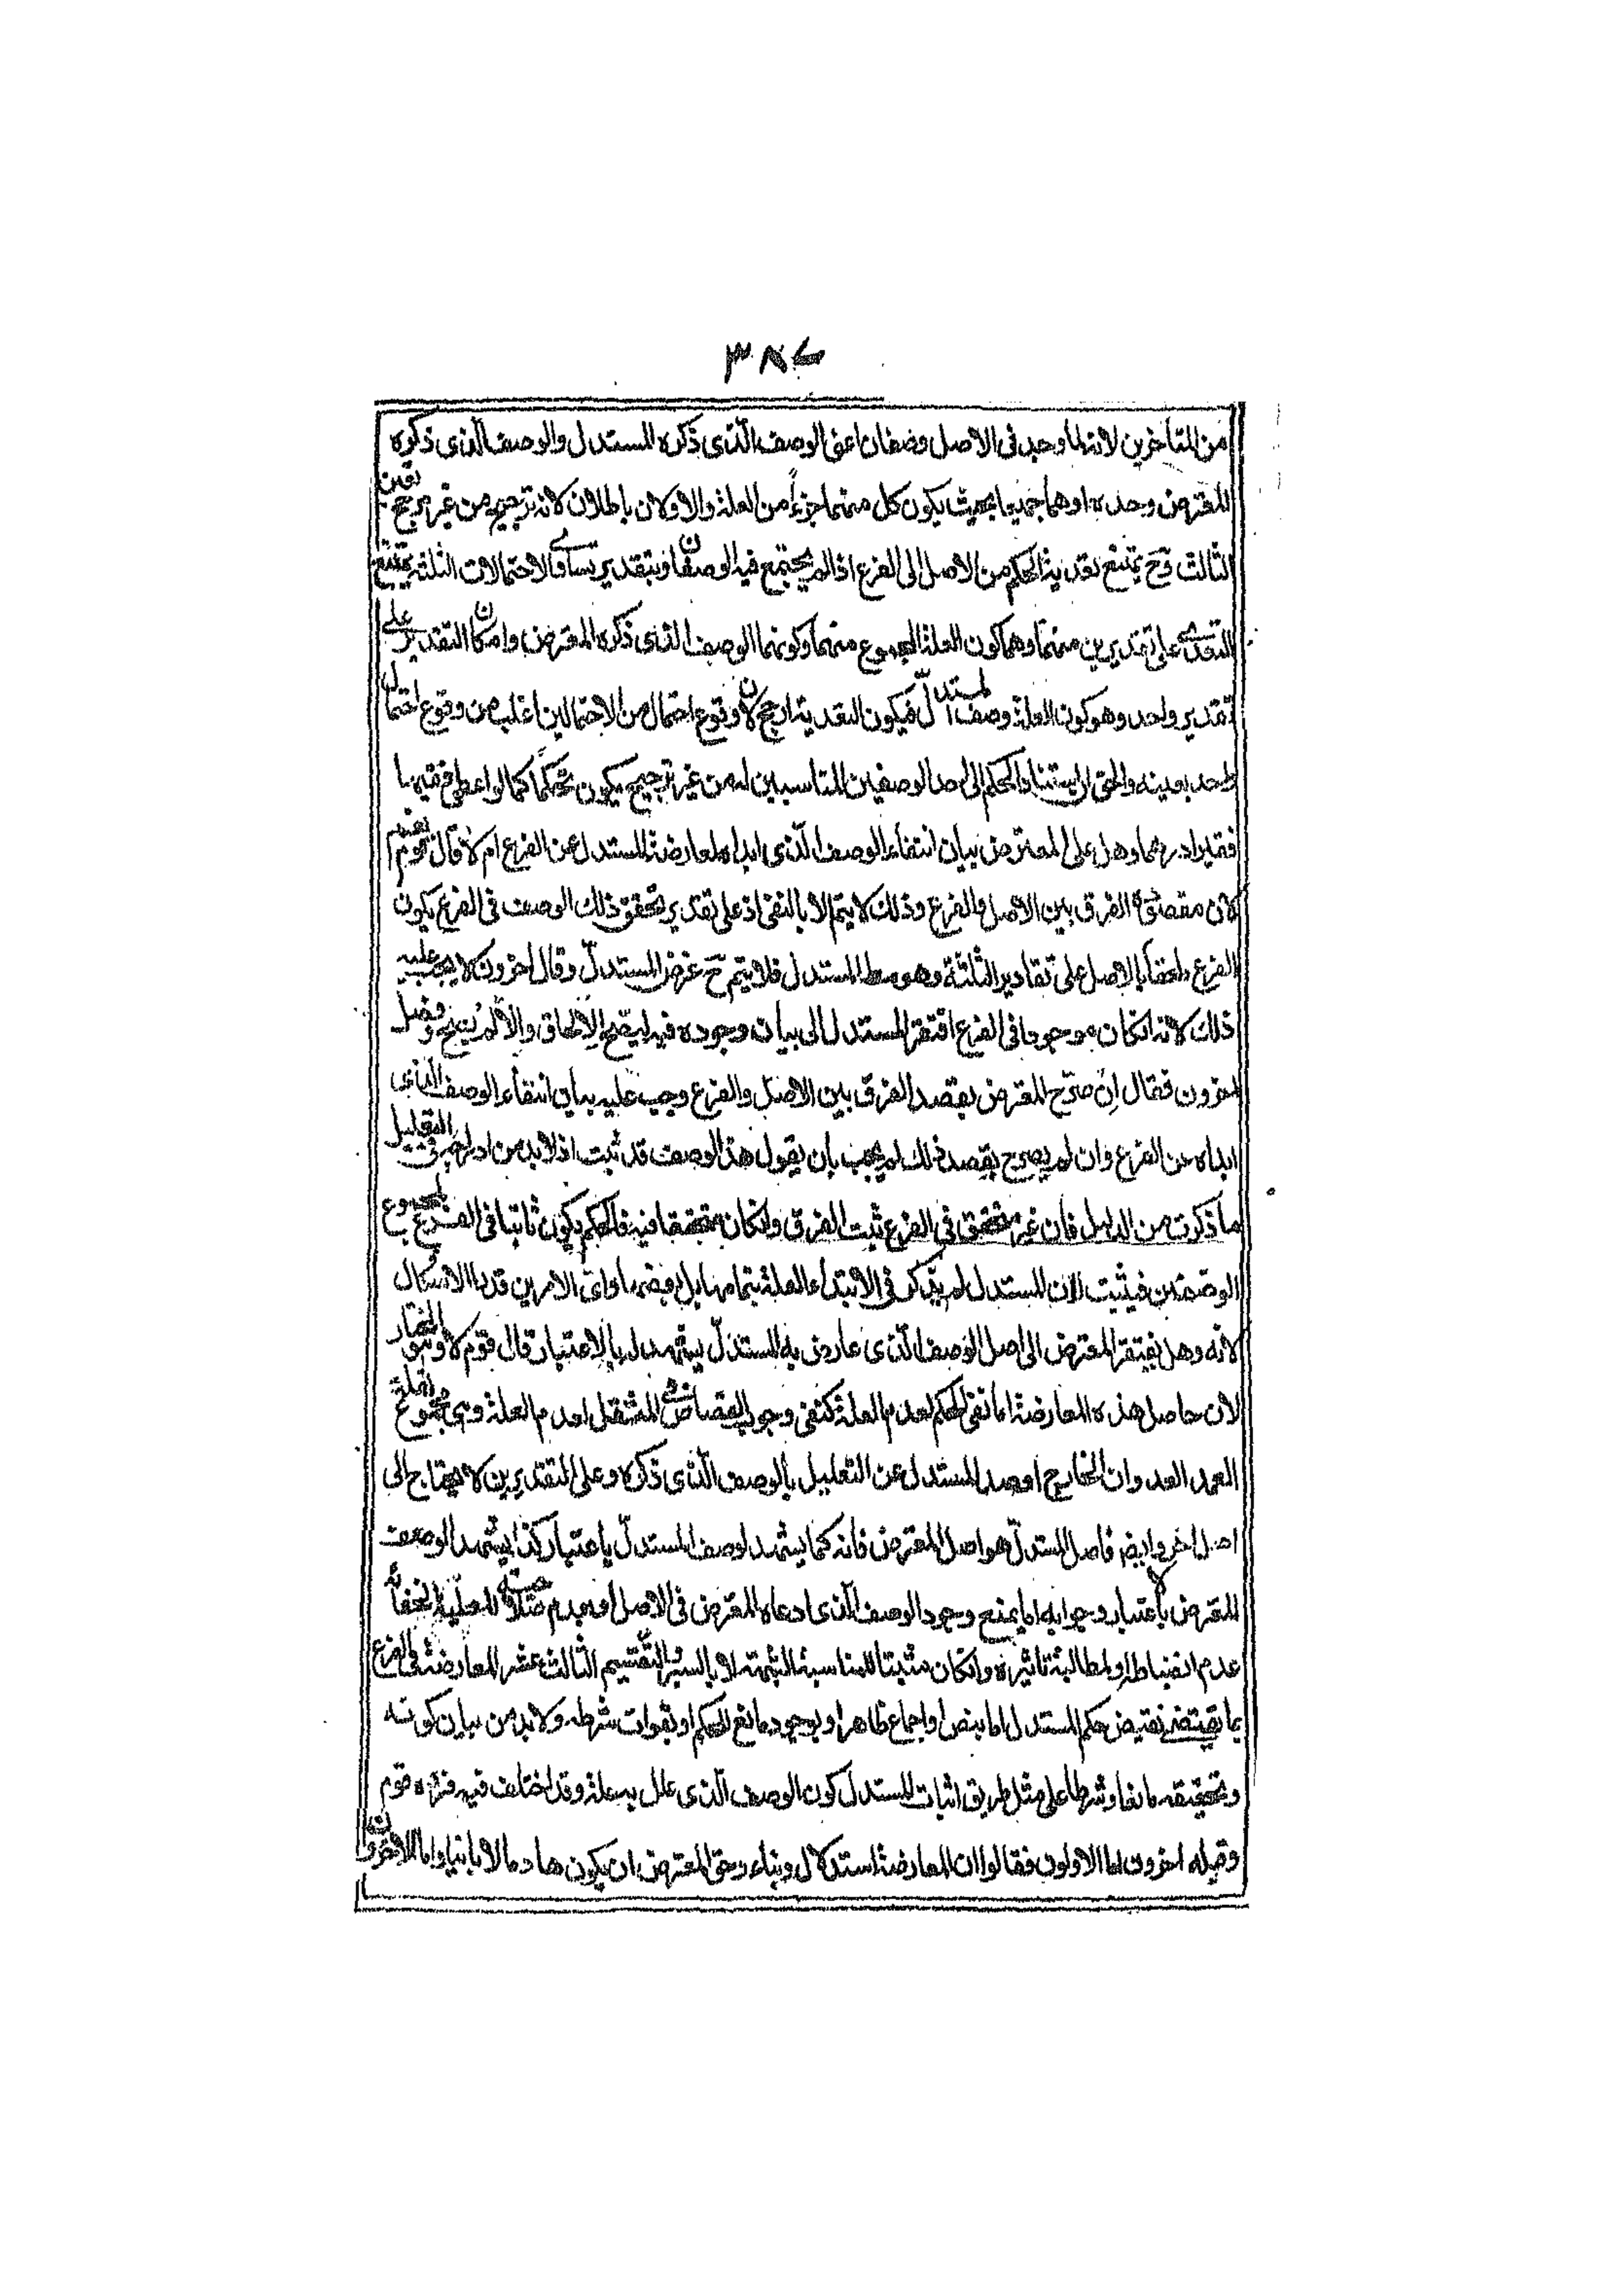 ٣٨٧
من المتاخرين لانه لما وجد فى الاصل وصفان اعنى الوصف الّذى ذكره المستدل والوصف الّذى ذكره
المعترض وحده او هما جميعا بحيث يكون كل منهما جزءاً من العلة والاولان باطلان لانه ترجيح من غير مرجح تعين
الثالث وح يمتنع تعدية الحكم من الاصل الى الفرع اذا لم يجتمع فيه الوصفان وبتقدير تساوى الاحتمالات الثلثة يمتنع
التعدى على تقديرين منهما وهما كون العلة المجموع منهما وكونهما الوصف الذى ذكره المعترض وامكان التقدير على
تقدير واحد وهو كون العلة وصف المستدلّ فيكون التعدية ارجح لان وقوع احتمال من الاحتمالين اغلب من وقوع احتمال
واحد بعينه والحق ان استناد الحكم الى احد الوصفين المناسبين له من غير ترجيح يكون تحكماً كما لو اعطى فقيها
فقيرا درهما وهل على المعترض بيان انتفاء الوصف الّذى ابداه لمعارضة المستدل عن الفرع ام لا قال قوم نعم
لان مقصوده الفرق بين الاصل والفرع وذلك لا يتم الا بالنفى اذ على تقدير تحقق ذلك الوصف فى الفرع يكون
الفرع ملحقا بالاصل على تقادير الثلثة وهو مط المستدل فلا يتم ح غرض المستدلّ وقال اخرون لا يجب عليه
ذلك لانه انكان موجودا فى الفرع افتقر المستدل الى بيان وجوده فيه ليصّح الالحاق والّا لم يصح وفصل
اخرون فقال ان صرّح المعترض بقصد الفرق بين الاصل والفرع وجب عليه بيان انتفاء الوصف الذى
ابداه عن الفرع وان لم يصرح بقصد ذلك لم يجب بان يقول هذا الوصف قد ثبت اذ لابد من ادراجه فى التعليل
ما ذكرت من الدليل فان غير متحقق فى الفرع ثبت الفرق وانكان متحققا فيه فالحكم يكون ثابتا فى الفرع لمجموع
الوصفين فيثبت ان المستدل لم يذكر فى الابتداء العلة بتمامها بل بعضها واىّ الامرين قدر الاشكال
لانه وهل يفتقر المعترض الى اصل الوصف الّذى عارض به المستدلّ يشهد له بالاعتبار قال قوم لا وهو المختار
لان حاصل هذه المعارضة اما نفى الحكم لعدم العلة كنفى وجوب القصاص فى المثقل لعدم العلة وهى مجموع القتل
العمد العدوان الخارج او صد المستدل عن التعليل بالوصف الّذى ذكره وعلى التقديرين لا يحتاج الى
اصل اخر وايض فاصل المستدلّ هو اصل المعترض فانه كما يشهد لوصف المستدلّ باعتبار كذا يشهد الوصف
المعترض باعتبار وجوابه اما بمنع وجود الوصف الّذى ادعاه المعترض فى الاصل او بعدم صلاحيته للعلّية لخفائه
عدم انضباطه او لمطالبة تاثيره وانكان مثبتا للمناسبة الشبهة لا بالسبر والتقسيم الثالث عشر المعارضة فى الفرع
بما يقتضى نقيض حكم المستدل اما بنص او اجماع ظاهر او بوجود مانع للحكم او بفوات شرطه ولابد من بيان كونه
وتحقيقه مانعا وشرطا على مثل طريق اثبات المستدل كون الوصف الّذى علل به علة وقد اختلف فيه فرده قوم
وقبله اخرون اما الاولون فقالوا ان المعارضة استدلال وبناء وحق المعترض ان يكون هادما لا بانيا واما الاخرون